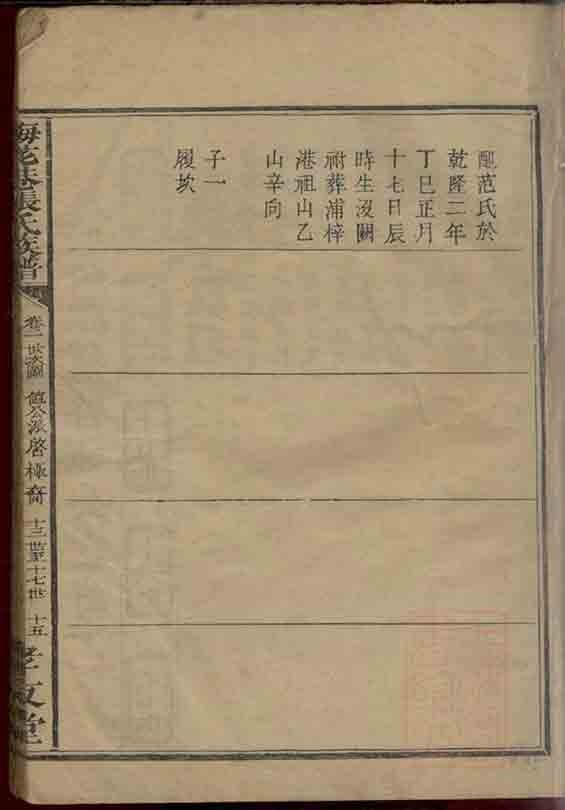 配范氏於
乾隆二年
丁巳正月
十七日辰
時生沒闕
祔葬浦梓
港祖山乙
山辛向
子一
履坎
梅花巷張氏族譜
卷一世次圖
啓極裔
十三世至十七世
十五
孝友堂